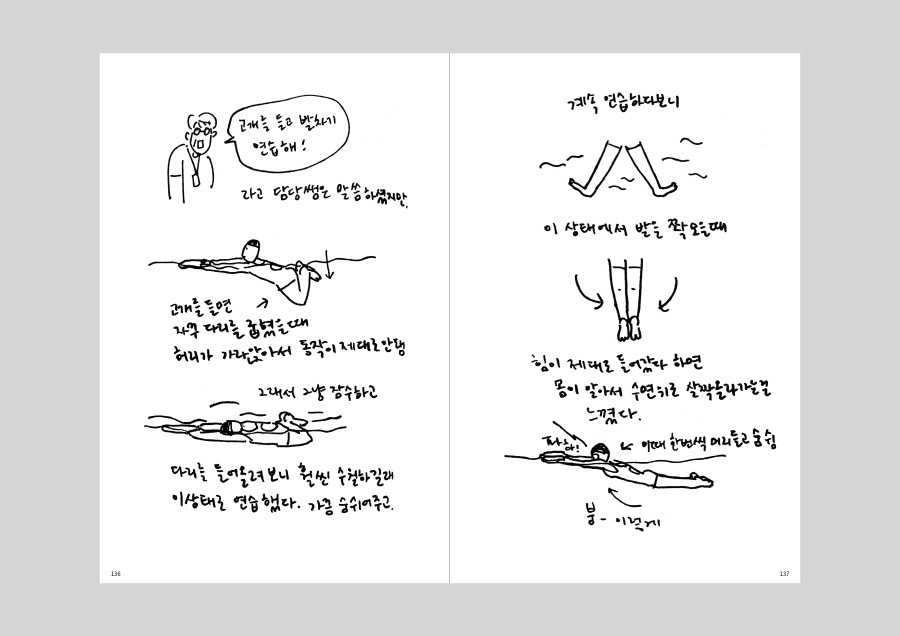 고개를 들고 발차기
연습해!
라고 담당쌤은 말씀하셨지만,
고개를 들면
자꾸 다리를 굽혔을때
허리가 가라앉아서 동작이 제대로안됨
그래서 그냥 잠수하고
다리를 들어올려보니 훨씬 수월하길래
이상태로 연습했다. 가끔 숨쉬어주고.
136
계속 연습하다보니
이 상태에서 발을 쫙 모을때
힘이 제대로 들어갔다 하면
몸이 알아서 수면위로 살짝올라가는걸
느꼈다.
이때 한번씩 머리들고 숨쉼
붕- 이렇게
137